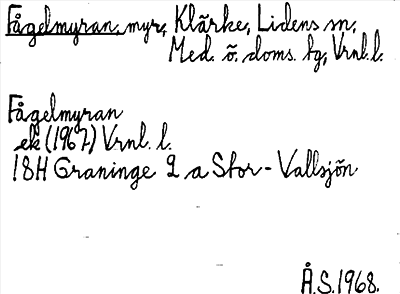 Fågelmyran, myr, Klärke, Lidens sn,
Med. ö. doms. hg, Vrnl. l.
Fågelmyran
ek (1967) Vrnl. l.
18H Graninge 2 a Stor-Vallsjön
Å.S. 1968.